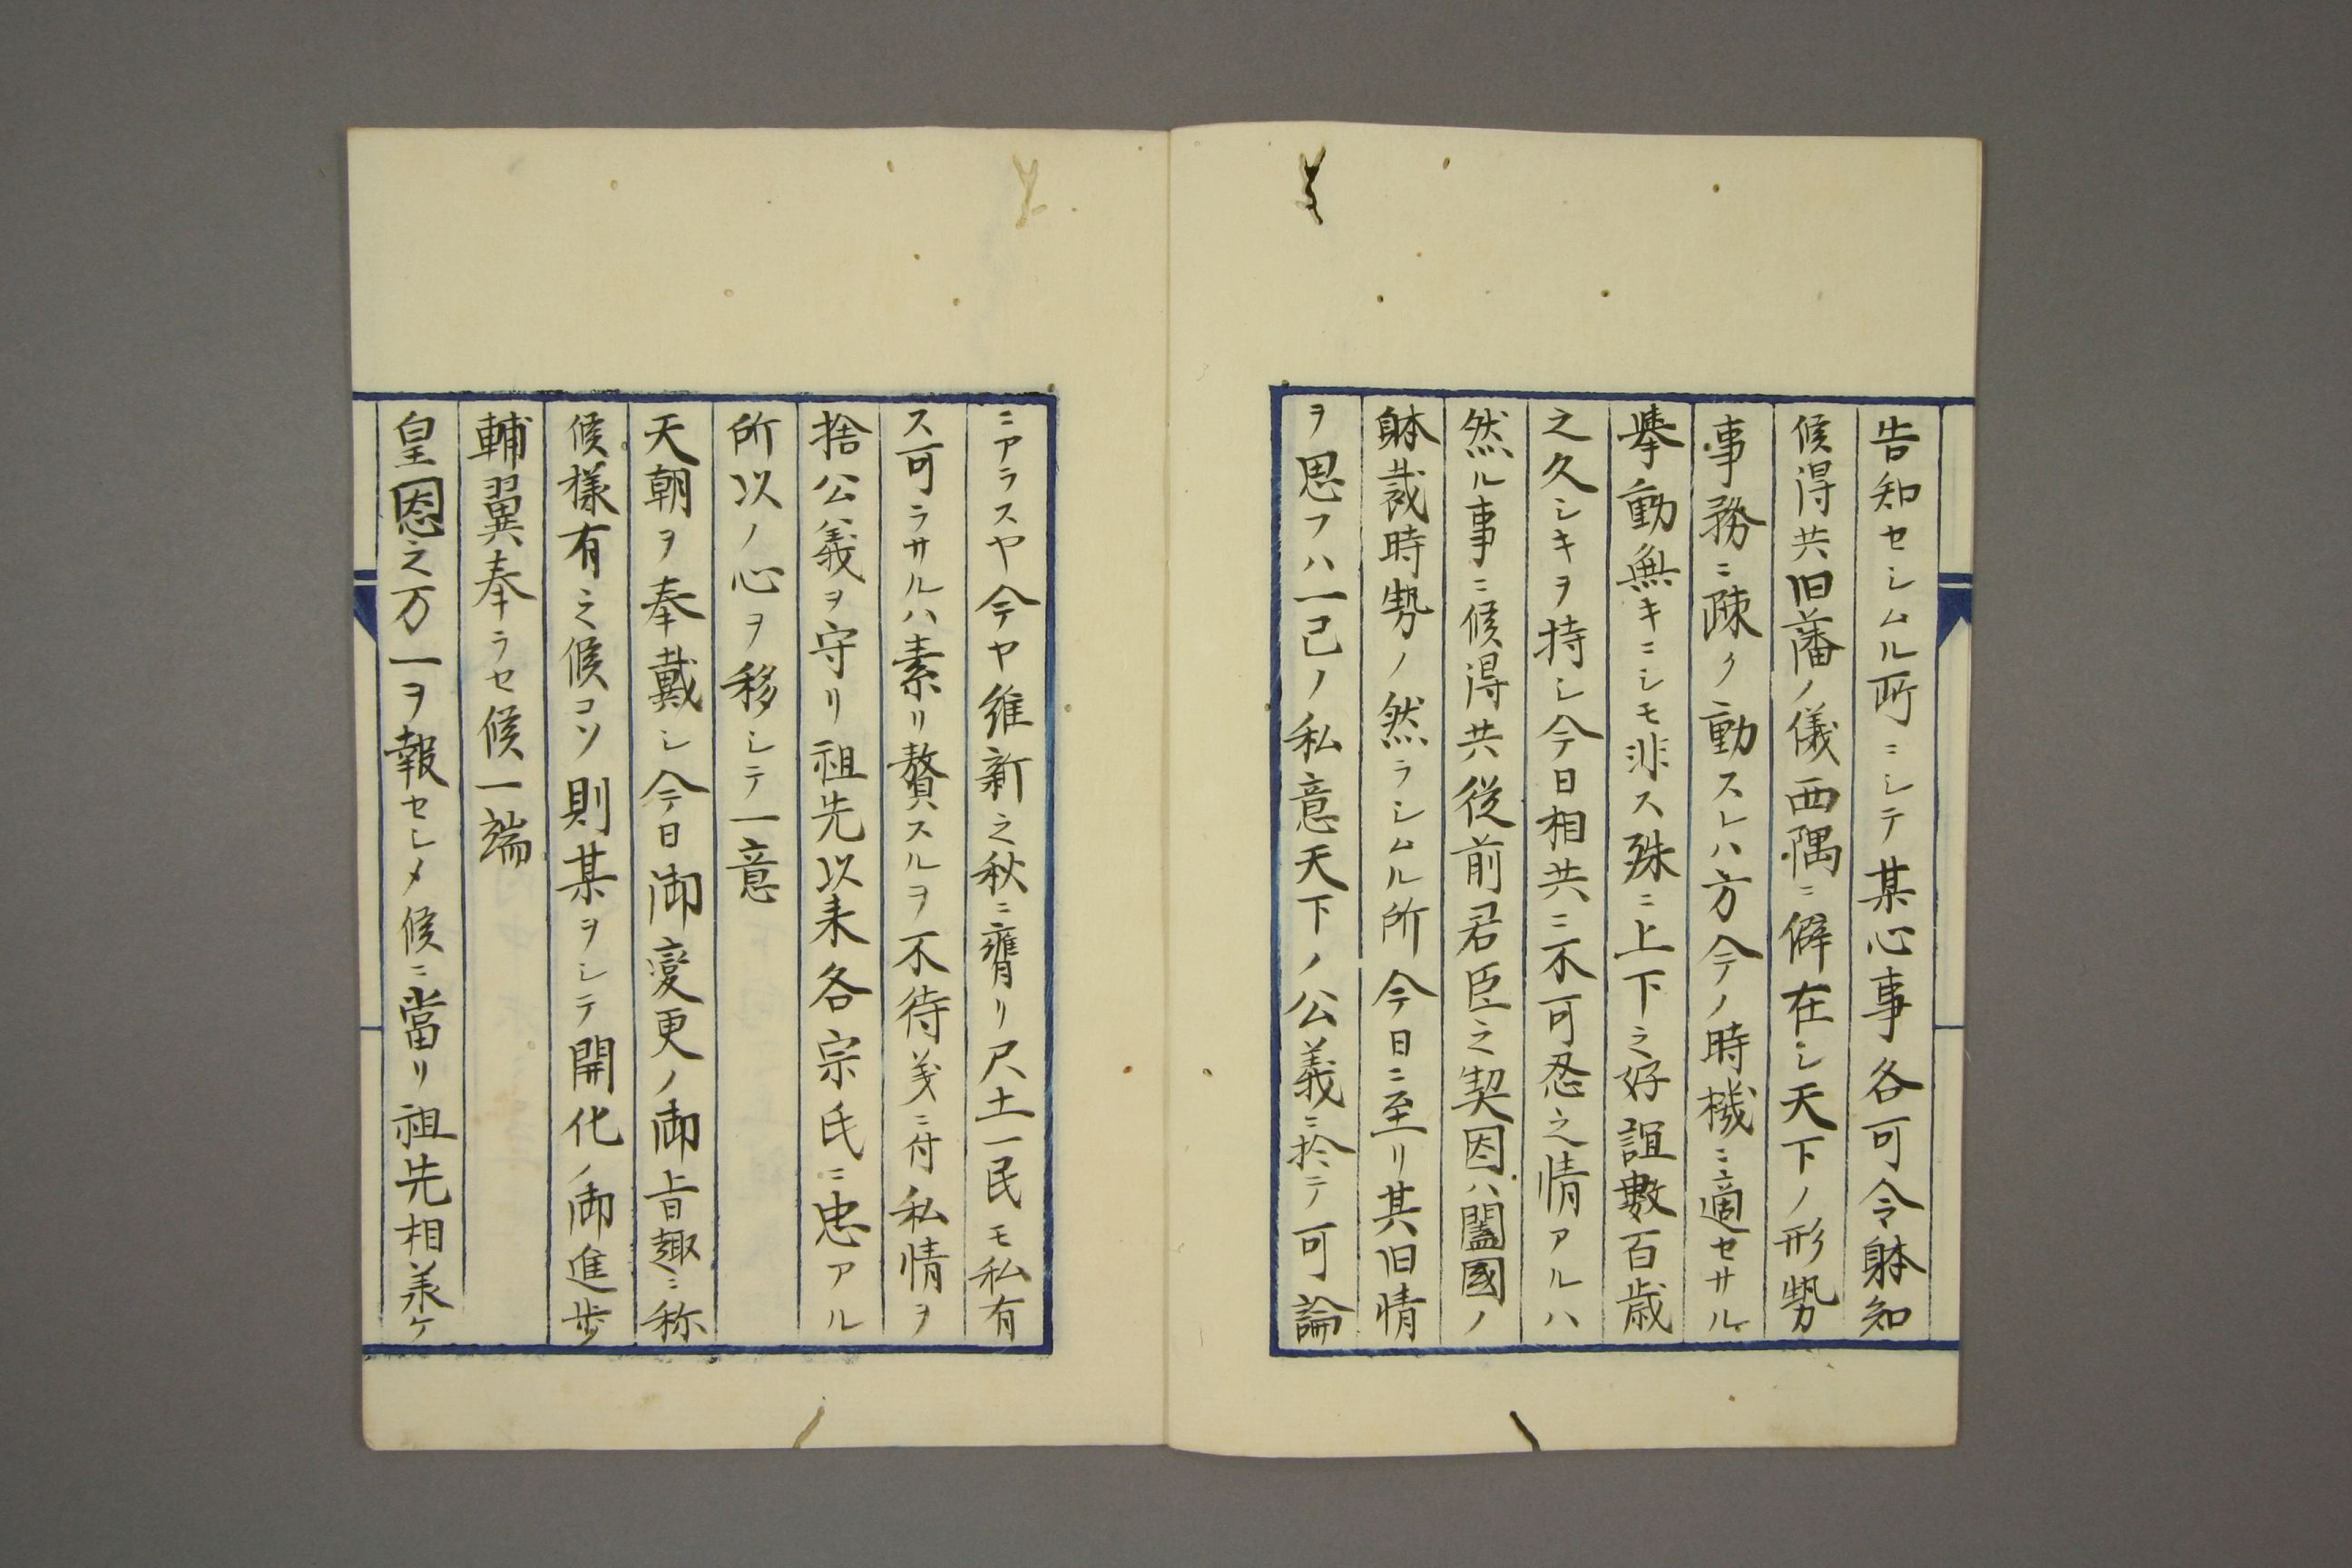 告知セシムル所ニシテ某心事各可令躰知
候得共旧藩ノ儀西隅ニ僻在シ天下ノ形勢
事務ニ疎ク動スレハ方今ノ時機ニ適セサル
擧動無キニシモ非ス殊ニ上下之好誼數百歳
之久シキヲ持シ今日相共ニ不可忍之情アルハ
然ル事ニ候得共従前君臣之契因ハ闔國ノ
躰裁時勢ノ然ラシムル所今日ニ至リ其旧情
ヲ思フハ一己ノ私意天下ノ公義ニ於テ可論
ニアラスヤ今ヤ維新之秋ニ膺リ尺土一民モ私有
ス可ラサルハ素リ贅スルヲ不待義ニ付私情ヲ
捨公義ヲ守リ祖先以来各宗氏ニ忠アル
所以ノ心ヲ移シテ一意
天朝ヲ奉戴シ今日御変更ノ御旨趣ニ称
候様有之候コソ則某ヲシテ開化ノ御進歩
輔翼奉ラセ候一端
皇恩之万一ヲ報セシメ候ニ當リ祖先相羕ケ